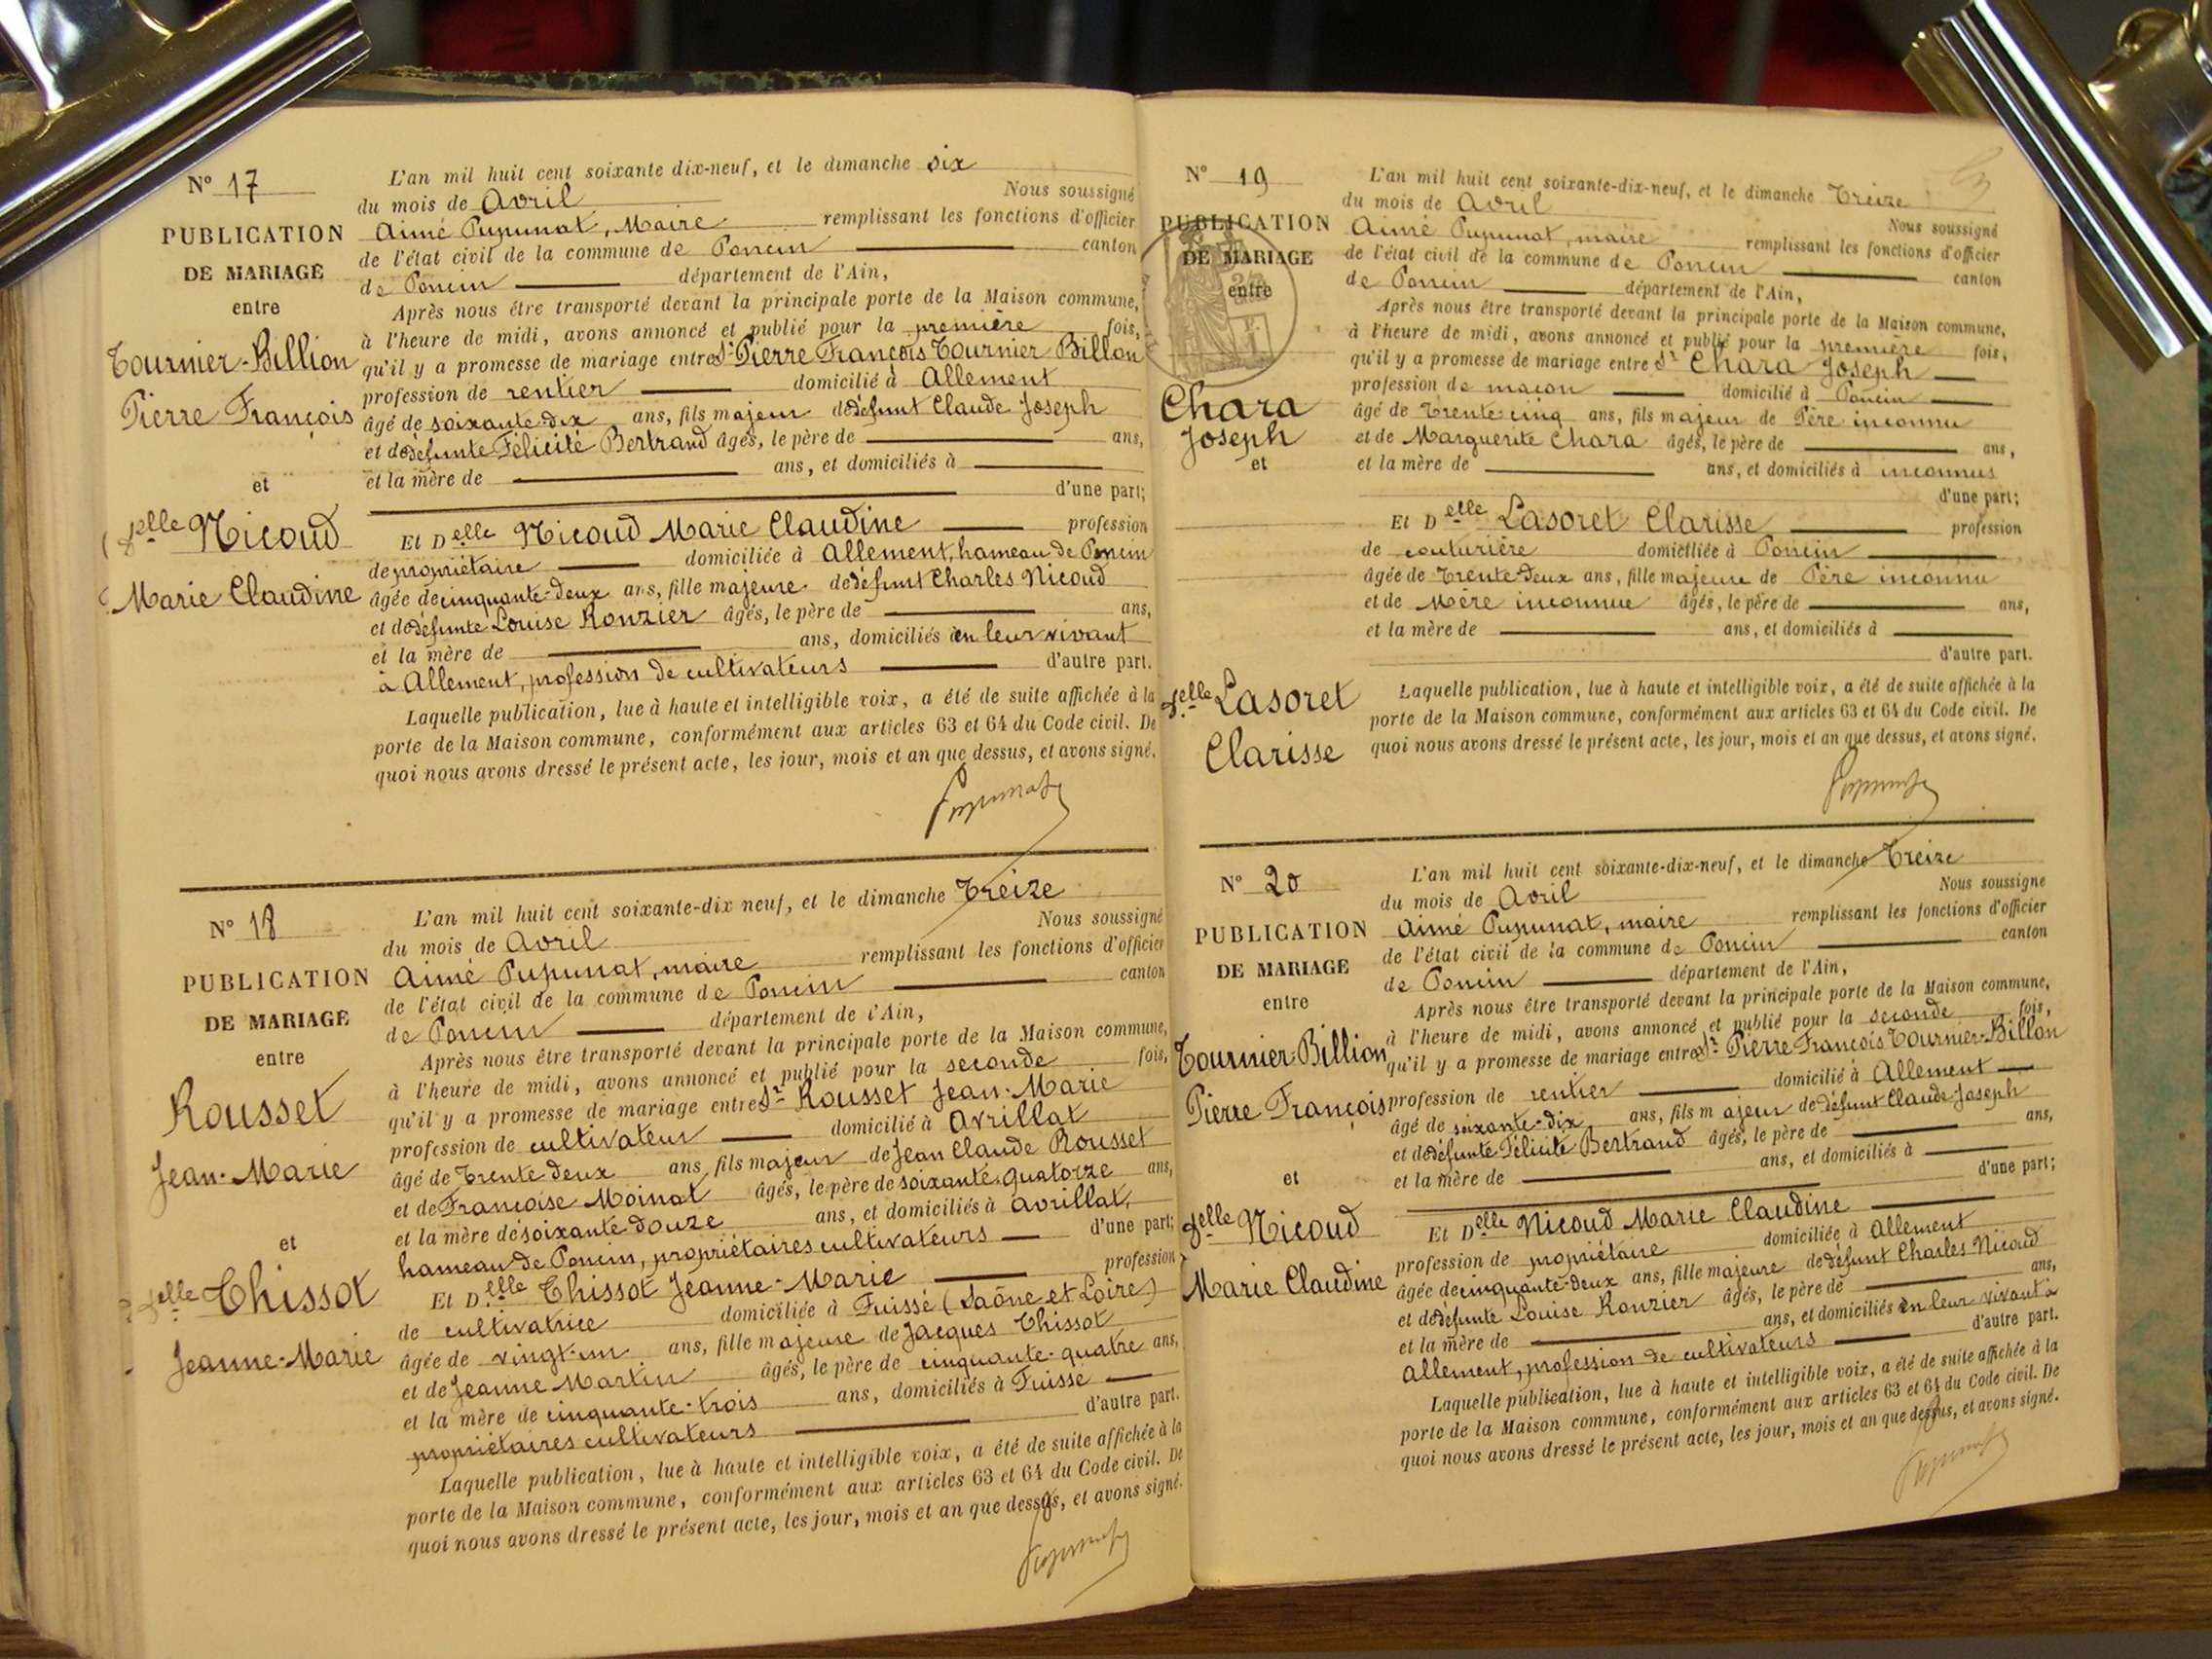 N° 17
PUBLICATION
DE MARIAGE
entre
Tournier-Billion
Pierre François
et
delle Nicoud
Marie Claudine
L'an mil huit cent soixante dix-neuf, et le dimanche six
du mois de Avril Nous soussigné
Aimé Pupunat, Maire remplissant les fonctions d'officier
de l'état civil de la commune de Poncin canton
de Poncin département de l'Ain,
Après nous être transporté devant la principale porte de la Maison commune,
à l'heure de midi, avons annoncé et publié pour la première fois,
qu'il y a promesse de mariage entre Sr Pierre François Tournier Billon
profession de rentier domicilié à Allement
âgé de soixante-dix ans, fils majeur de défunt Claude Joseph
et de défunte Félicité Bertrand âgés, le père de ans,
et la mère de ans, et domiciliés à
d'une part;
Et Delle Nicoud Marie Claudine profession
de propriétaire domiciliée à Allement, hameau de Poncin
âgée de cinquante-deux ans, fille majeure de défunt Charles Nicoud
et de défunte Louise Ronzier âgés, le père de ans,
et la mère de ans, domiciliés en leur vivant
à Allement, profession de cultivateurs d'autre part.
Laquelle publication, lue à haute et intelligible voix, a été de suite affichée à la
porte de la Maison commune, conformément aux articles 63 et 64 du Code civil. De
quoi nous avons dressé le présent acte, les jour, mois et an que dessus, et avons signé.
Pupunat
N° 18
PUBLICATION
DE MARIAGE
entre
Rousset
Jean-Marie
et
delle Thissot
Jeanne-Marie
L'an mil huit cent soixante-dix neuf, et le dimanche Treize
du mois de Avril Nous soussigné
Aimé Pupunat, maire remplissant les fonctions d'officier
de l'état civil de la commune de Poncin canton
de Poncin département de l'Ain,
Après nous être transporté devant la principale porte de la Maison commune,
à l'heure de midi, avons annoncé et publié pour la seconde fois,
qu'il y a promesse de mariage entre Sr Rousset Jean-Marie
profession de cultivateur domicilié à Avrillat
âgé de Trente deux ans, fils majeur de Jean Claude Rousset
et de Françoise Moinat âgés, le père de soixante-quatorze ans,
et la mère de soixante-douze ans, et domiciliés à Avrillat,
hameau de Poncin, propriétaires cultivateurs d'une part;
Et Delle Thissot Jeanne-Marie profession
de cultivatrice domiciliée à Fuissé (Saône et Loire)
âgée de vingt-un ans, fille majeure de Jacques Thissot
et de Jeanne Martin âgés, le père de cinquante-quatre ans,
et la mère de cinquante-trois ans, domiciliés à Fuisse
propriétaires cultivateurs d'autre part.
Laquelle publication, lue à haute et intelligible voix, a été de suite affichée à la
porte de la Maison commune, conformément aux articles 63 et 64 du Code civil. De
quoi nous avons dressé le présent acte, les jour, mois et an que dessus, et avons signé.
Pupunat
N° 19
PUBLICATION
DE MARIAGE
entre
Chara
Joseph
et
delle Lasoret
Clarisse
L'an mil huit cent soixante-dix-neuf, et le dimanche Treize
du mois de Avril Nous soussigné
Aimé Pupunat, maire remplissant les fonctions d'officier
de l'état civil de la commune de Poncin canton
de Poncin département de l'Ain,
Après nous être transporté devant la principale porte de la Maison commune,
à l'heure de midi, avons annoncé et publié pour la première fois,
qu'il y a promesse de mariage entre Sr Chara Joseph
profession de maçon domicilié à Poncin
âgé de Trente-cinq ans, fils majeur de Père inconnu
et de Marguerite Chara âgés, le père de ans,
et la mère de ans, et domiciliés à inconnus
d'une part;
Et Delle Lasoret Clarisse profession
de couturière domiciliée à Poncin
âgée de Trente-deux ans, fille majeure de Père inconnu
et de Mère inconnue âgés, le père de ans,
et la mère de ans, et domiciliés à
d'autre part.
Laquelle publication, lue à haute et intelligible voix, a été de suite affichée à la
porte de la Maison commune, conformément aux articles 63 et 64 du Code civil. De
quoi nous avons dressé le présent acte, les jour, mois et an que dessus, et avons signé.
Pupunat
N° 20
PUBLICATION
DE MARIAGE
entre
Tournier-Billion
Pierre François
et
delle Nicoud
Marie Claudine
L'an mil huit cent soixante-dix-neuf, et le dimanche Treize
du mois de Avril Nous soussigné
Aimé Pupunat, maire remplissant les fonctions d'officier
de l'état civil de la commune de Poncin canton
de Poncin département de l'Ain,
Après nous être transporté devant la principale porte de la Maison commune,
à l'heure de midi, avons annoncé et publié pour la seconde fois,
qu'il y a promesse de mariage entre Sr Pierre François Tournier-Billon
profession de rentier domicilié à Allement
âgé de soixante-dix ans, fils majeur de défunt Claude Joseph
et de défunte Félicité Bertrand âgés, le père de ans,
et la mère de ans, et domiciliés à
d'une part;
Et Delle Nicoud Marie Claudine
profession de propriétaire domiciliée à Allement
âgée de cinquante-deux ans, fille majeure de défunt Charles Nicoud
et de défunte Louise Ronzier âgés, le père de ans,
et la mère de ans, et domiciliés en leur vivant à
Allement, profession de cultivateurs d'autre part.
Laquelle publication, lue à haute et intelligible voix, a été de suite affichée à la
porte de la Maison commune, conformément aux articles 63 et 64 du Code civil. De
quoi nous avons dressé le présent acte, les jour, mois et an que dessus, et avons signé.
Pupunat